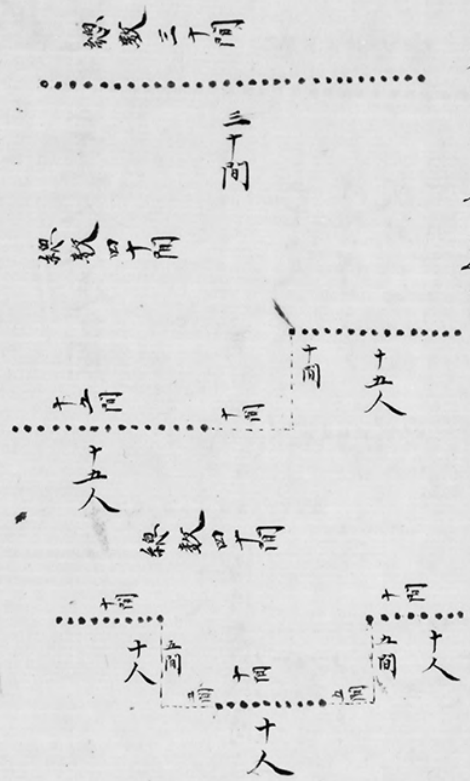 總数三十間
三十間
總数四十間
十間
十五人
十五間
十間
十五人
總数四十間
十間
十間
十人
五間
十間
九間
十人
五間
十人